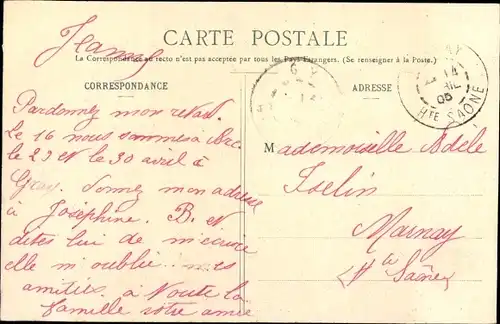 Jeanne
CARTE POSTALE
La Correspondance au recto n'est pas acceptée par tous les Pays Étrangers. (Se renseigner à la Poste.)
CORRESPONDANCE
ADRESSE
Pardonnez mon retard.
le 16 nous sommes à Arc.
le 29 et le 30 avril à
Gray. Donnez mon adresse
à Joséphine. B. et
dites lui de m'écrire
elle m'oublie. mes
amitiés à toute la
famille votre amie
Mademoiselle Adèle
Iselin
Marnay
Hte Saône
GY
14
05
HTE SAONE